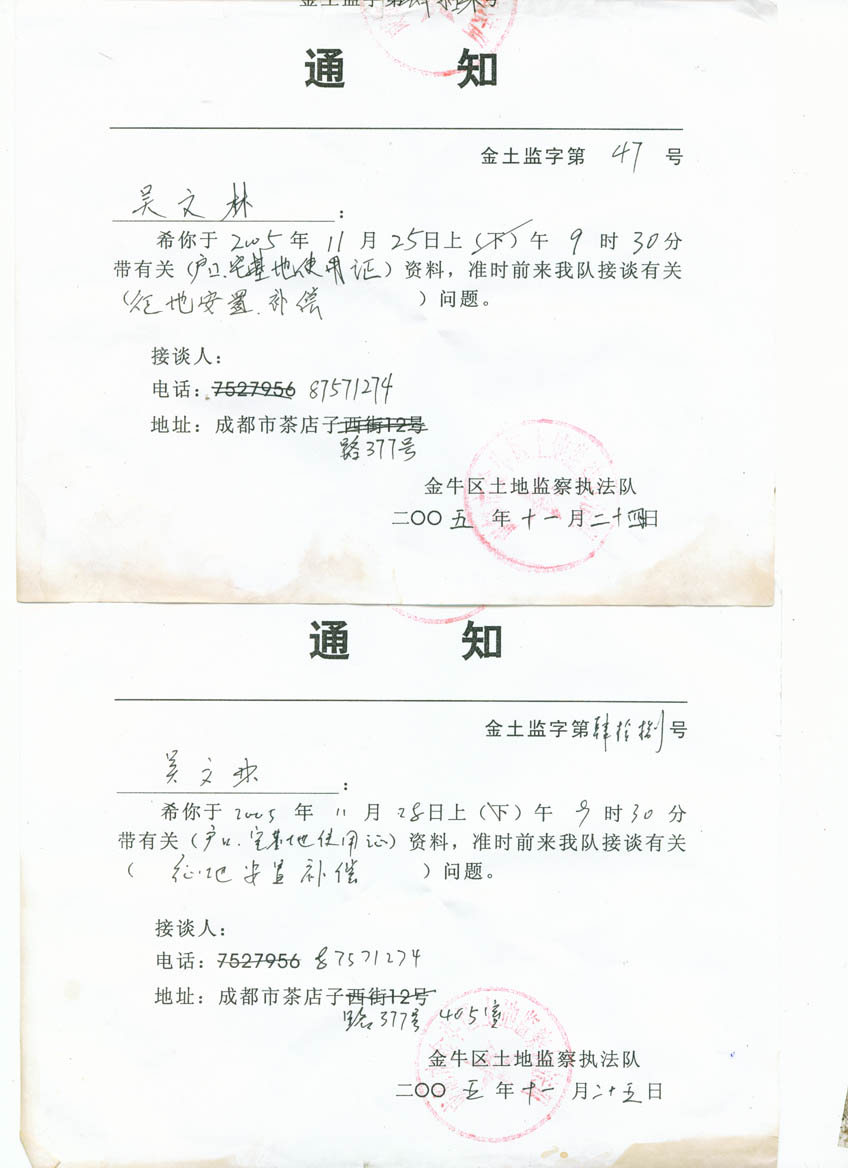 金土监字第
号
通 知
金土监字第 47 号
吴文林：
希你于 2005 年 11 月 25日上（下）午 9 时 30分
带有关（户口.宅基地使用证）资料，准时前来我队接谈有关
（征地安置.补偿 ）问题。
接谈人：
电话：7527956 87571274
地址：成都市茶店子西街12号
路377号
金牛区土地监察执法队
二〇〇五 年 十一 月 二十四日
通 知
金土监字第肆拾捌号
吴文林：
希你于 2005 年 11 月 28日上（下）午 9 时 30 分
带有关（户口.宅基地使用证）资料，准时前来我队接谈有关
（ 征地安置补偿 ）问题。
接谈人：
电话：7527956 87571274
地址：成都市茶店子西街12号
路377号 405室
金牛区土地监察执法队
二〇〇五 年 十一 月 二十五日